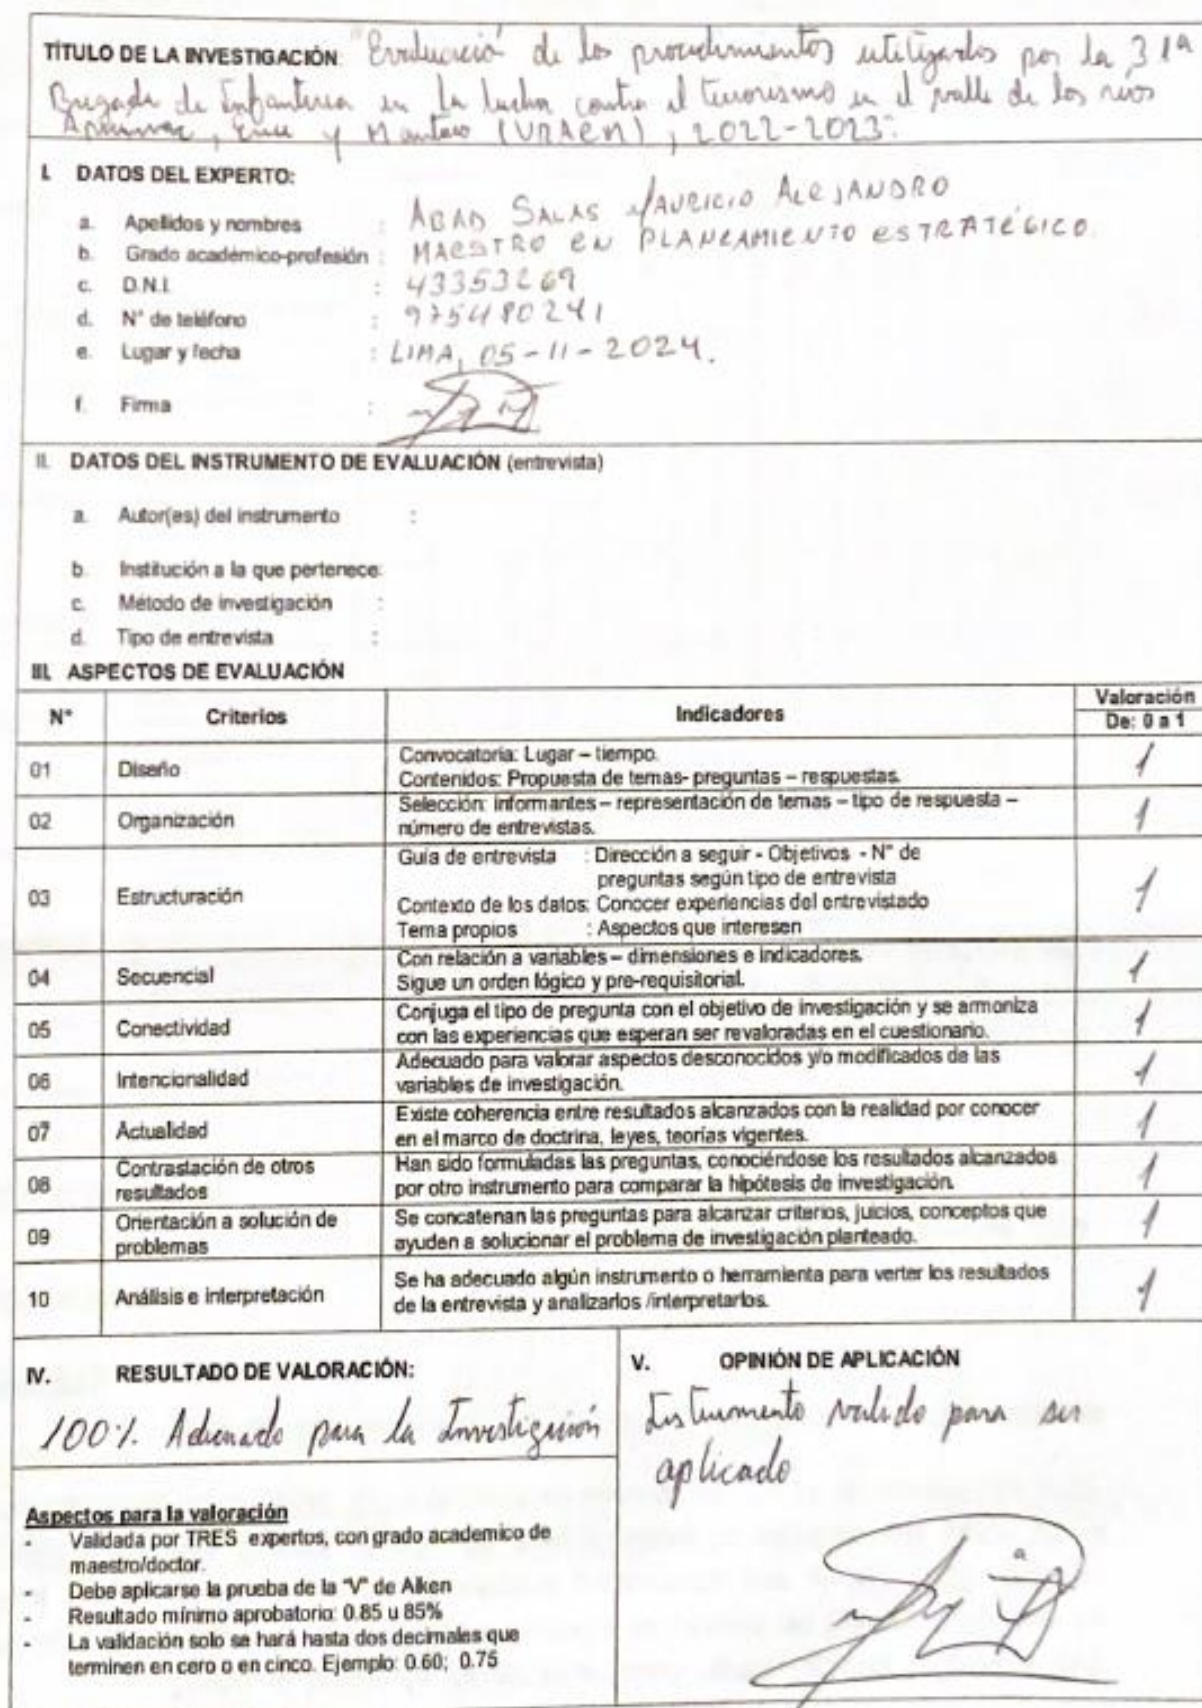 TÍTULO DE LA INVESTIGACIÓN: "Evaluación de los procedimientos utilizados por la 31ª
Brigada de Infantería en la lucha contra el terrorismo en el valle de los ríos
Apurímac, Ene y Mantaro (VRAEM), 2022-2023".
I. DATOS DEL EXPERTO:
a. Apellidos y nombres : ABAD SALAS MAURICIO ALEJANDRO
b. Grado académico-profesión : MAESTRO EN PLANEAMIENTO ESTRATÉGICO.
c. D.N.I. : 43353269
d. N° de teléfono : 975480241
e. Lugar y fecha : LIMA, 05-11-2024.
f. Firma :
II. DATOS DEL INSTRUMENTO DE EVALUACIÓN (entrevista)
a. Autor(es) del instrumento :
b. Institución a la que pertenece:
c. Método de investigación :
d. Tipo de entrevista :
III. ASPECTOS DE EVALUACIÓN
N° Criterios Indicadores Valoración
De: 0 a 1
01 Diseño Convocatoria: Lugar – tiempo.
Contenidos: Propuesta de temas- preguntas – respuestas. 1
02 Organización Selección: informantes – representación de temas – tipo de respuesta –
número de entrevistas. 1
03 Estructuración Guía de entrevista : Dirección a seguir - Objetivos - N° de
preguntas según tipo de entrevista
Contexto de los datos: Conocer experiencias del entrevistado
Tema propios : Aspectos que interesen 1
04 Secuencial Con relación a variables – dimensiones e indicadores.
Sigue un orden lógico y pre-requisitorial. 1
05 Conectividad Conjuga el tipo de pregunta con el objetivo de investigación y se armoniza
con las experiencias que esperan ser revaloradas en el cuestionario. 1
06 Intencionalidad Adecuado para valorar aspectos desconocidos y/o modificados de las
variables de investigación. 1
07 Actualidad Existe coherencia entre resultados alcanzados con la realidad por conocer
en el marco de doctrina, leyes, teorías vigentes. 1
08 Contrastación de otros resultados Han sido formuladas las preguntas, conociéndose los resultados alcanzados
por otro instrumento para comparar la hipótesis de investigación. 1
09 Orientación a solución de problemas Se concatenan las preguntas para alcanzar criterios, juicios, conceptos que
ayuden a solucionar el problema de investigación planteado. 1
10 Análisis e interpretación Se ha adecuado algún instrumento o herramienta para verter los resultados
de la entrevista y analizarlos /interpretarlos. 1
IV. RESULTADO DE VALORACIÓN:
100% Adecuado para la Investigación
Aspectos para la valoración
- Validada por TRES expertos, con grado academico de
maestro/doctor.
- Debe aplicarse la prueba de la "V" de Aiken
- Resultado mínimo aprobatorio: 0.85 u 85%
- La validación solo se hará hasta dos decimales que
terminen en cero o en cinco. Ejemplo: 0.60; 0.75
V. OPINIÓN DE APLICACIÓN
Instrumento valido para ser
aplicado